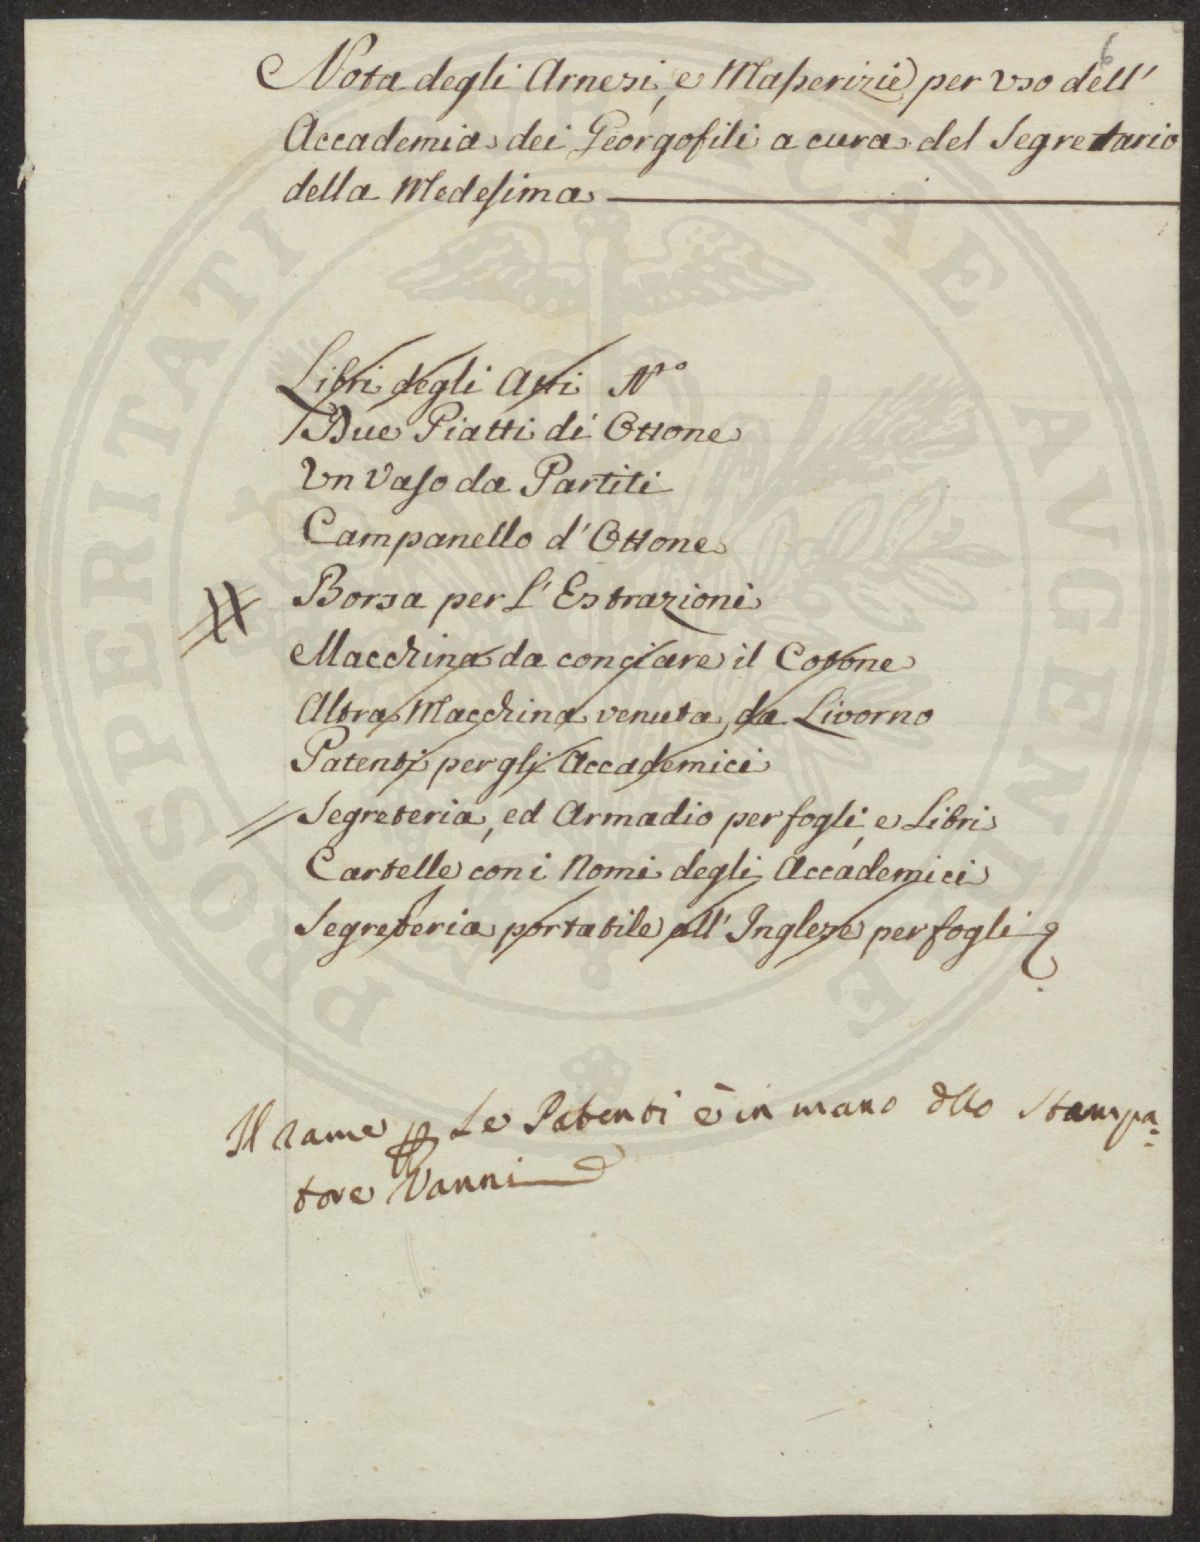 6
Nota degli Arnesi, e Masserizie per uso dell'
Accademia dei Georgofili a cura del Segretario
della Medesima
Libri degli Atti N.º
Due Piatti di Ottone
Un Vaso da Partiti
Campanello d'Ottone
Borsa per l'Estrazioni
Macchina da conciare il Cotone
Altra Macchina venuta da Livorno
Patenti per gli Accademici
Segreteria, ed Armadio per fogli, e Libri
Cartelle con i Nomi degli Accademici
Segreteria portabile all'Inglese per fogli
Il rame p le Patenti è in mano dllo Stampa=
tore Vanni
PROSPERITATI PUBLICAE AUGENDAE